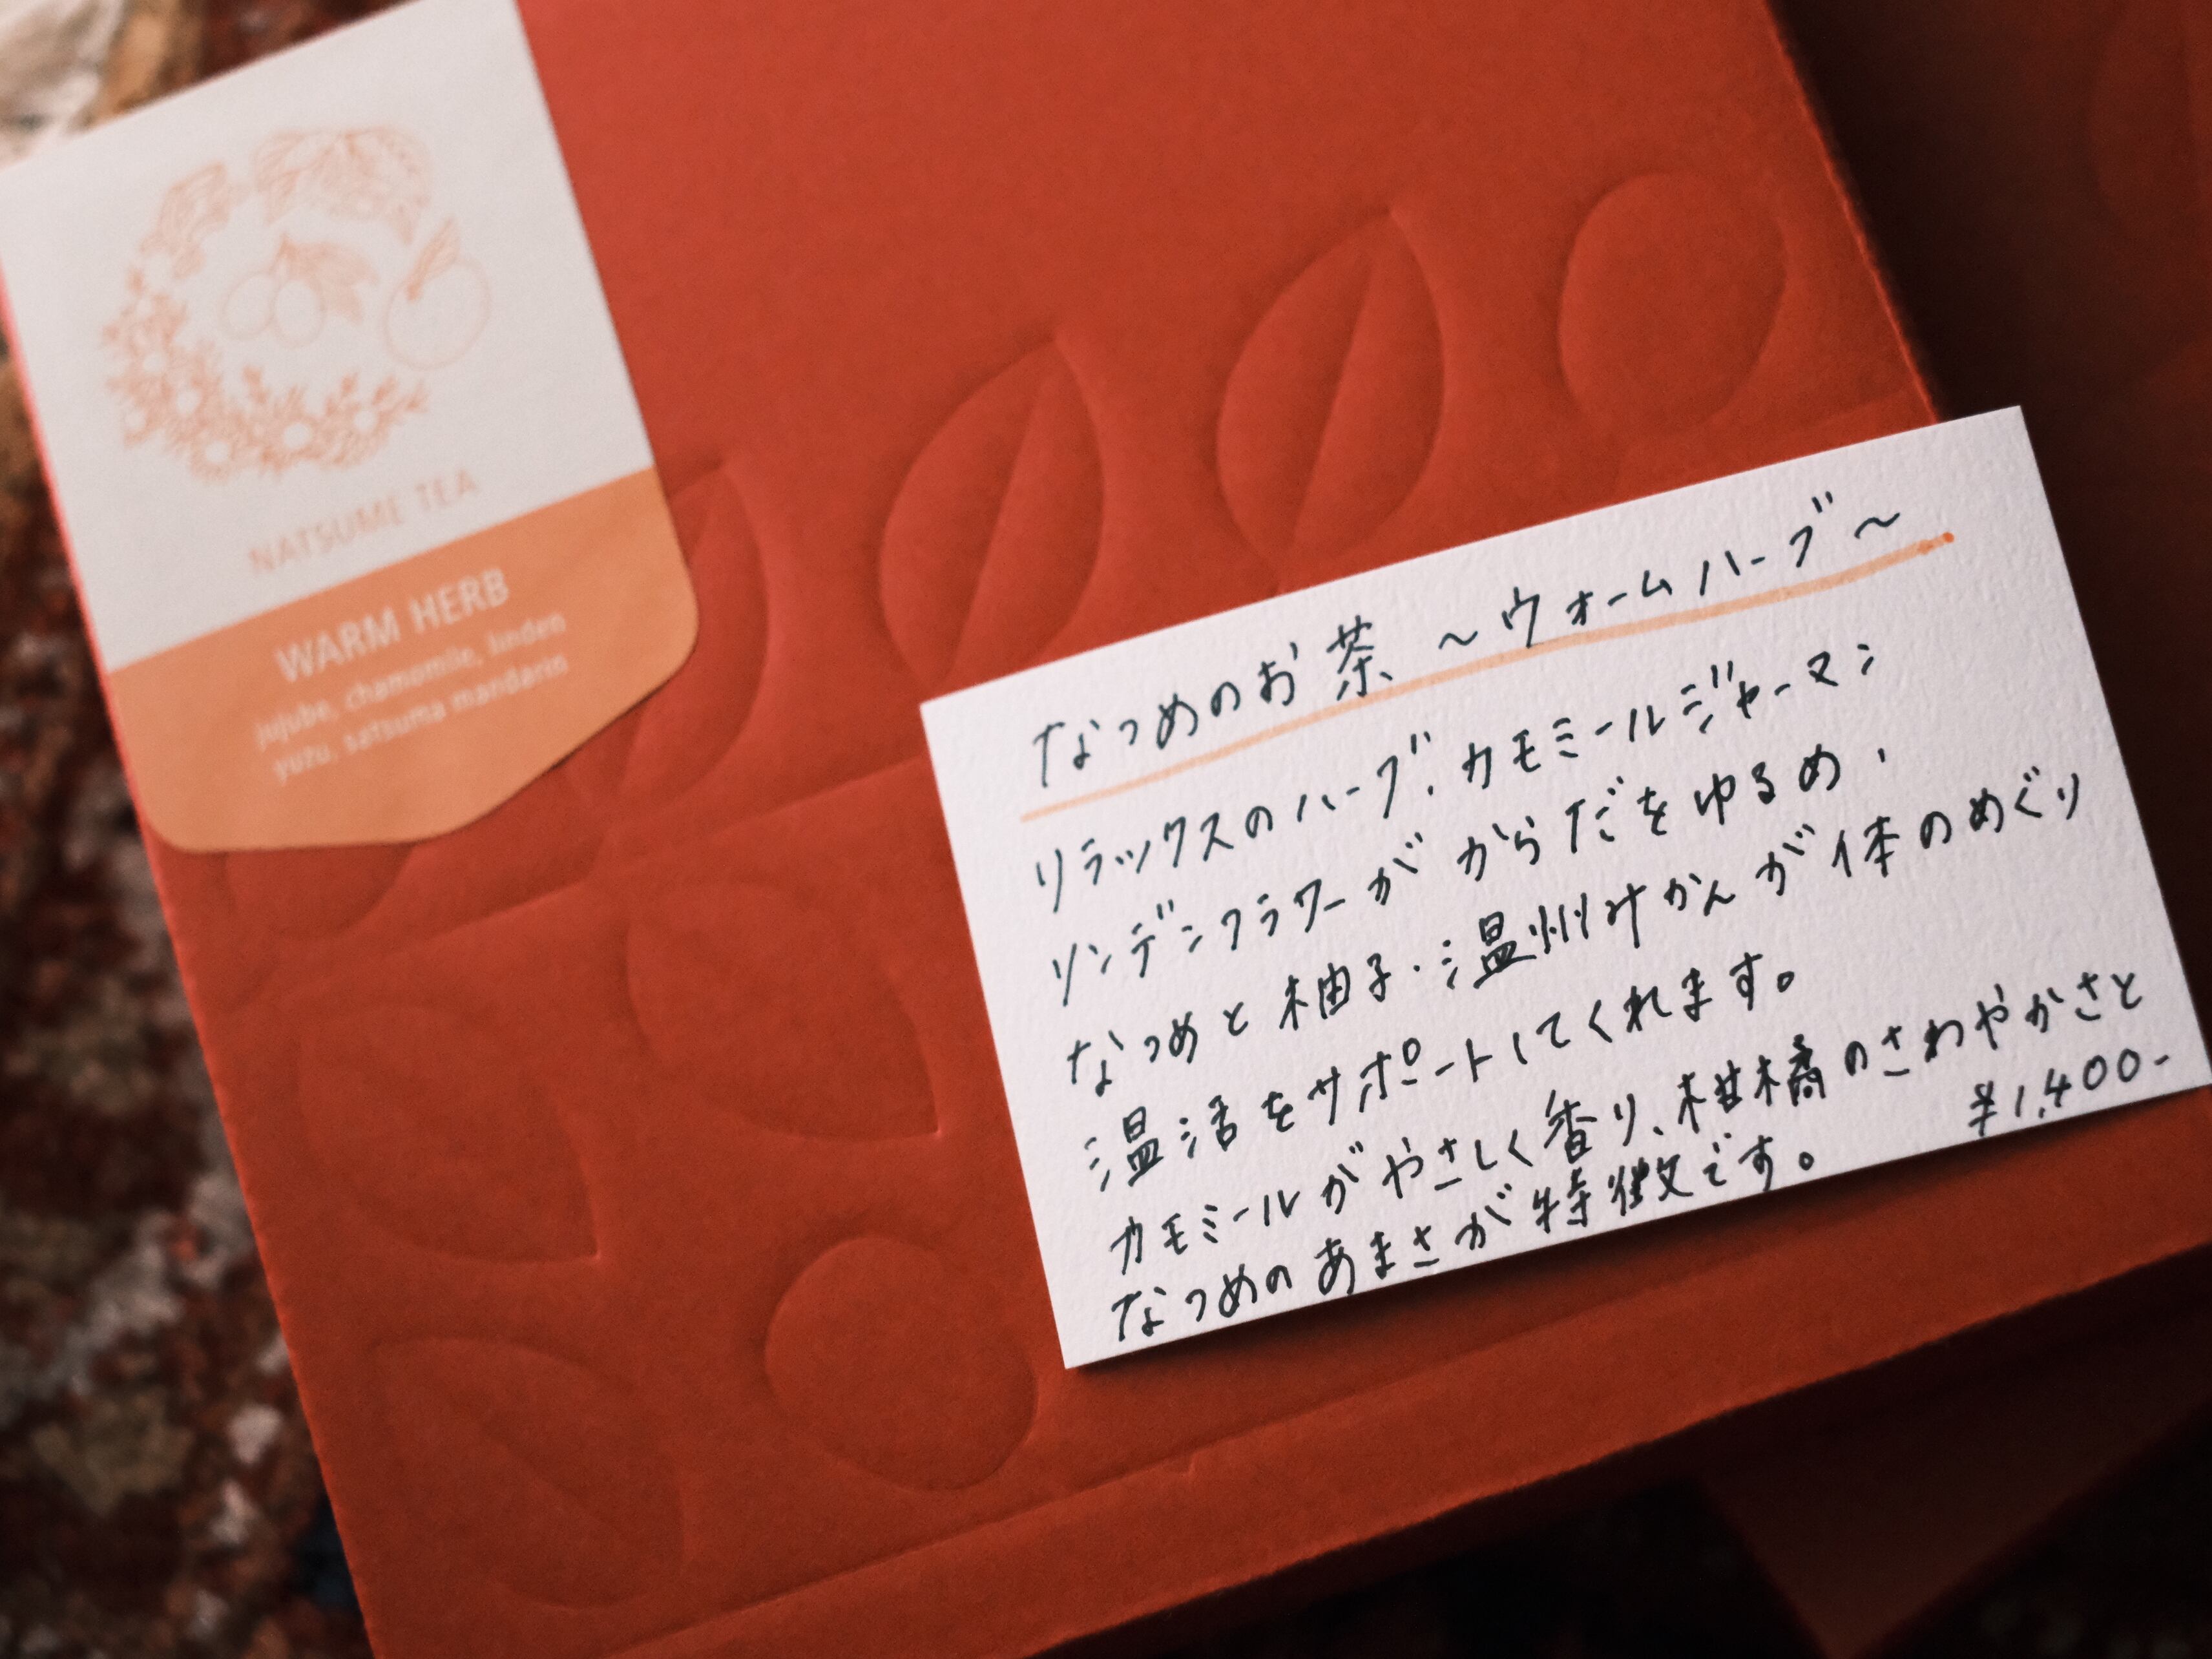 NATSUME TEA
WARM HERB
jujube, chamomile, linden
yuzu, satsuma mandarin
なつめのお茶 ～ウォームハーブ～
リラックスのハーブ、カモミールジャーマン
リンデンフラワーが からだをゆるめ、
なつめと柚子・温州みかんが体のめぐり
温活をサポートしてくれます。
カモミールがやさしく香り、柑橘のさわやかさと
なつめのあまさが特徴です。
¥1,400-